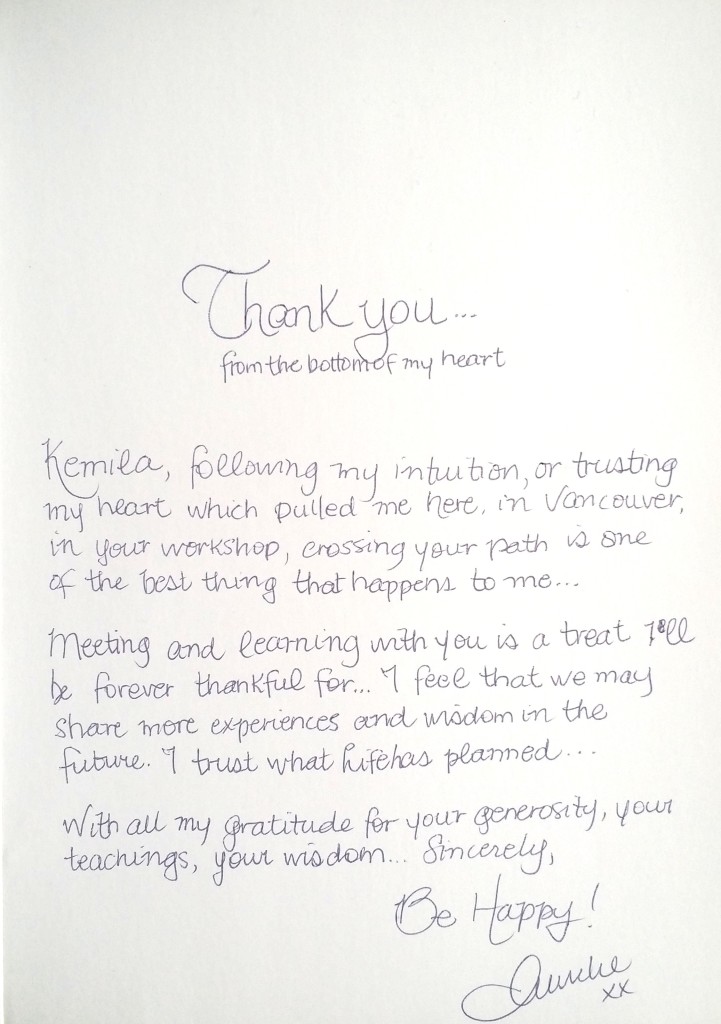 Thank you...
from the bottom of my heart
Kemila, following my intuition, or trusting
my heart which pulled me here, in Vancouver,
in your workshop, crossing your path is one
of the best thing that happens to me...
Meeting and learning with you is a treat I'll
be forever thankful for... I feel that we may
share more experiences and wisdom in the
future. I trust what life has planned...
With all my gratitude for your generosity, your
teachings, your wisdom... Sincerely,
Be Happy!
xx